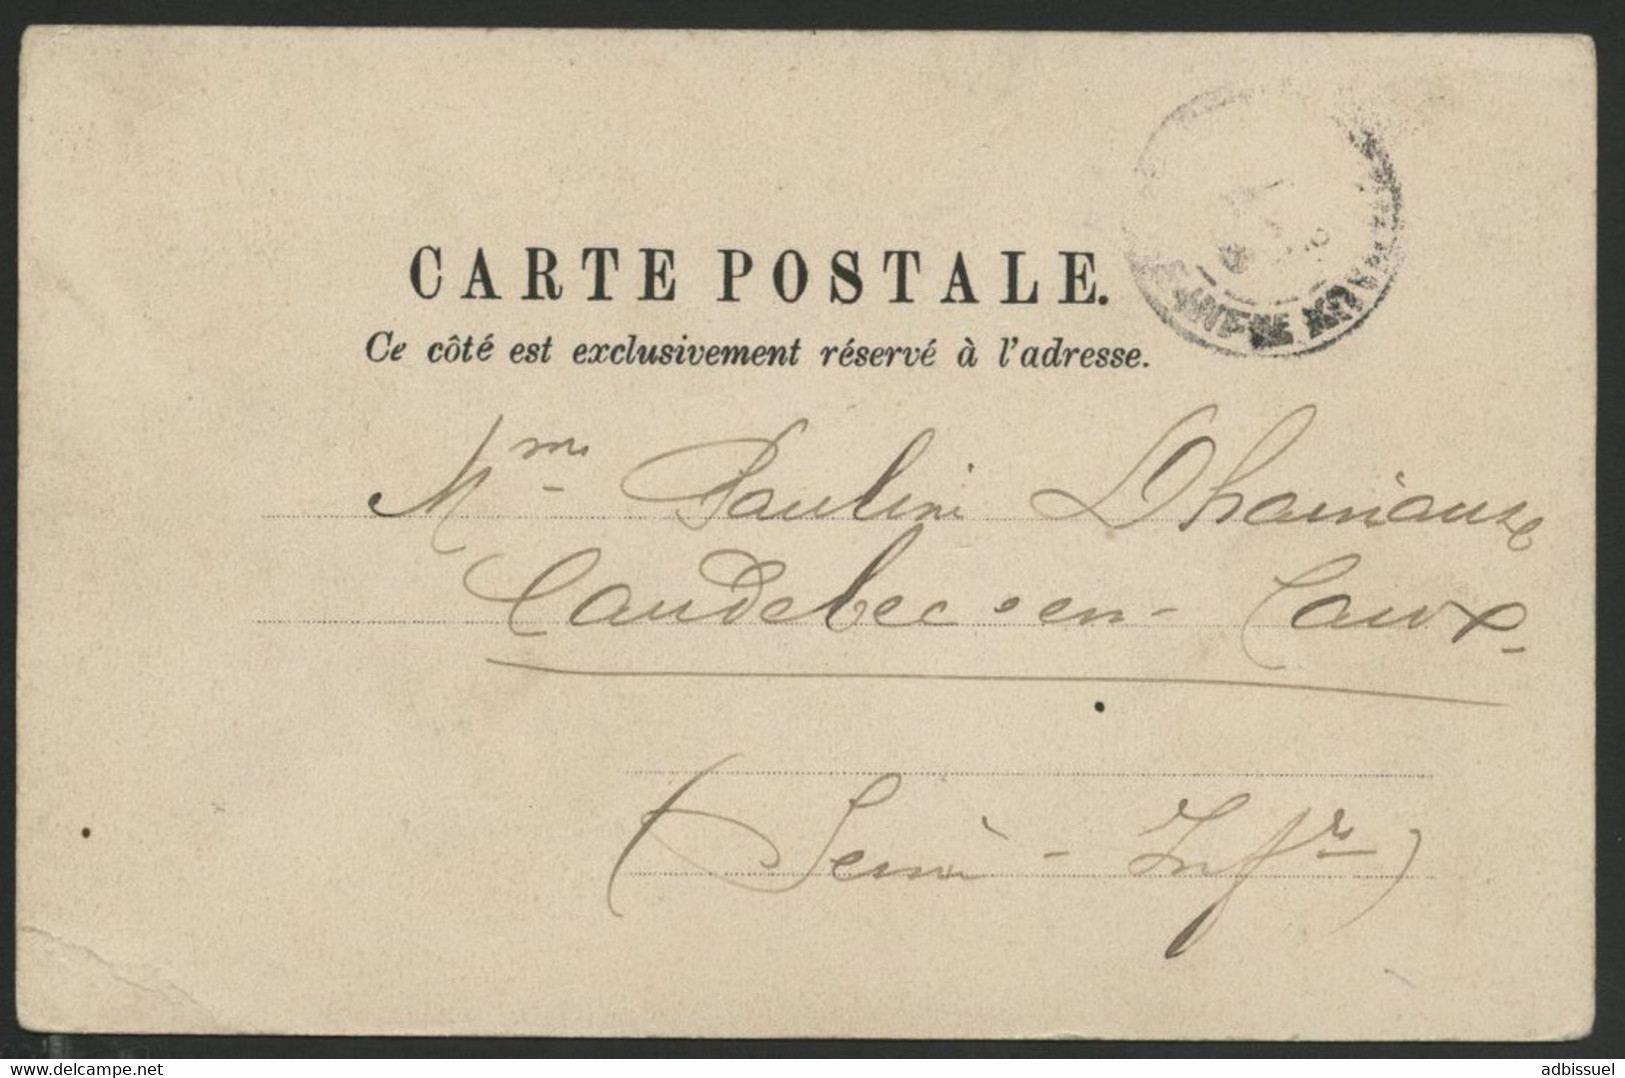 CARTE POSTALE.
Ce côté est exclusivement réservé à l'adresse.
Mme Pauline
Caudebec-en-Caux
(Seine-Infre)
delcampe.net
adbissuel